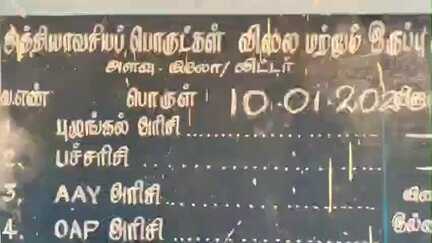 அத்தியாவசியப் பொருட்கள் விலை மற்றும் இருப்பு
அளவு - கிலோ / லிட்டர்
வ.எண் பொருள் 10.01.202
1. புழுங்கல் அரிசி
2. பச்சரிசி
3. AAY அரிசி
4. OAP அரிசி